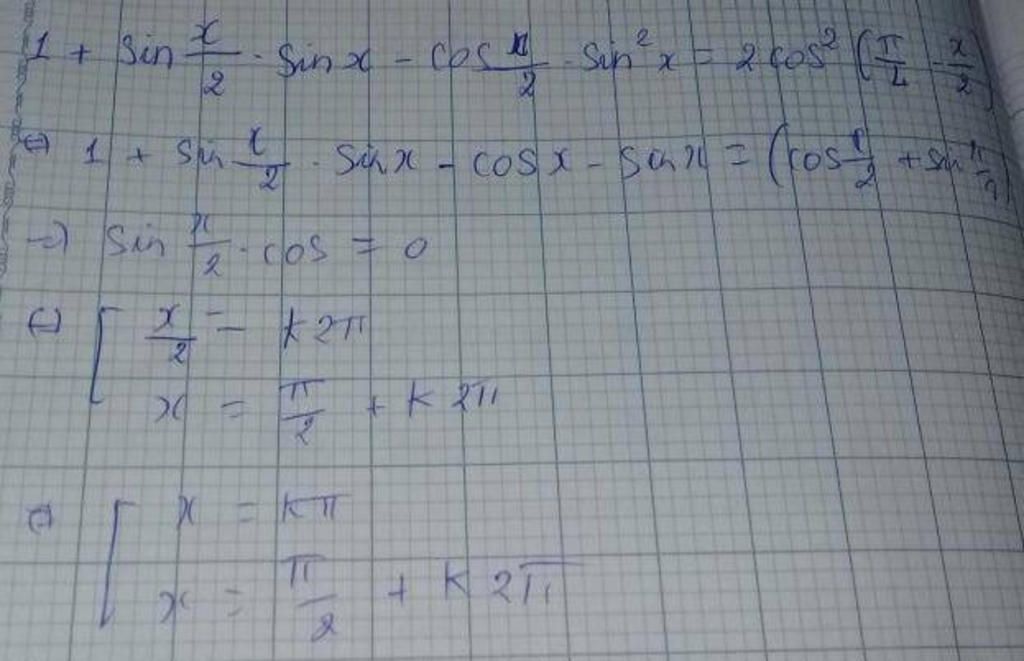 1 + sin x/2 . sin x - cos x/2 . sin² x = 2 cos² (π/4 - x/2)
⇔ 1 + sin x/2 . sin x - cos x - sin x = (cos x/2 + sin x/2)
=> sin x/2 . cos = 0
⇔ [ x/2 = k2π
x = π/2 + k2π
⇔ [ x = kπ
x = π/2 + k2π